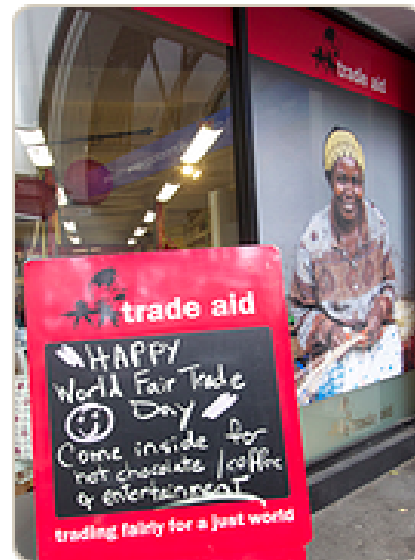 trade aid
trade aid
HAPPY
World Fair Trade
Day
Come inside for
hot chocolate / coffee
& entertainment
trading fairly for a just world
trade aid